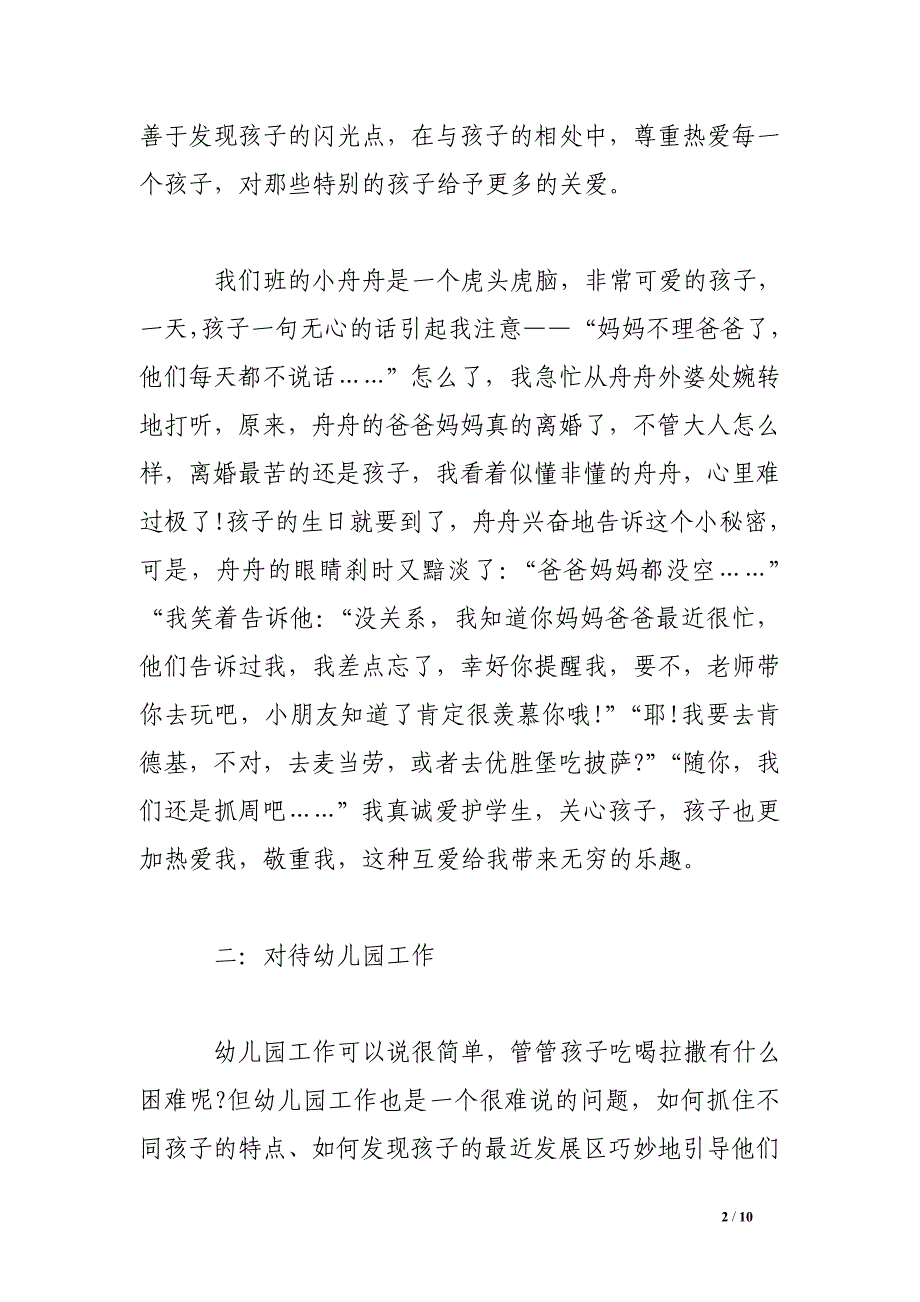 善于发现孩子的闪光点，在与孩子的相处中，尊重热爱每一
个孩子，对那些特别的孩子给予更多的关爱。
我们班的小舟舟是一个虎头虎脑，非常可爱的孩子，
一天,孩子一句无心的话引起我注意——“妈妈不理爸爸了，
他们每天都不说话……”怎么了，我急忙从舟舟外婆处婉转
地打听，原来，舟舟的爸爸妈妈真的离婚了，不管大人怎么
样，离婚最苦的还是孩子，我看着似懂非懂的舟舟，心里难
过极了!孩子的生日就要到了，舟舟兴奋地告诉这个小秘密，
可是，舟舟的眼睛刹时又黯淡了：“爸爸妈妈都没空……”
“我笑着告诉他：“没关系，我知道你妈妈爸爸最近很忙，
他们告诉过我，我差点忘了，幸好你提醒我，要不，老师带
你去玩吧，小朋友知道了肯定很羡慕你哦!”“耶!我要去肯
德基，不对，去麦当劳，或者去优胜堡吃披萨?”“随你，我
们还是抓周吧……”我真诚爱护学生，关心孩子，孩子也更
加热爱我，敬重我，这种互爱给我带来无穷的乐趣。
二：对待幼儿园工作
幼儿园工作可以说很简单，管管孩子吃喝拉撒有什么
困难呢?但幼儿园工作也是一个很难说的问题，如何抓住不
同孩子的特点、如何发现孩子的最近发展区巧妙地引导他们
2 / 10